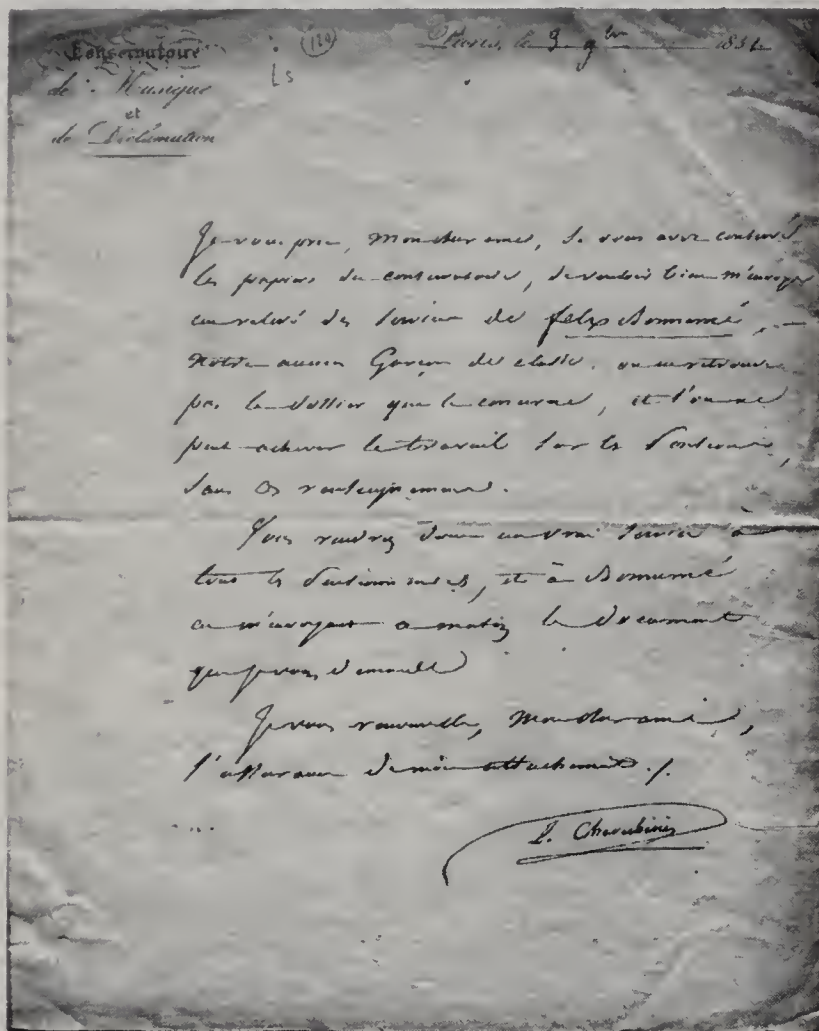 Conservatoire
de Musique
et
de Déclamation
(120)
LS
Paris, le 9 9bre 183
Je vous prie, Mon cher ami, Si vous avez conservé
les papiers du conservatoire, de vouloir bien m'envoyer
un relevé des Services de felix Bonnemé,
notre ancien Garçon de classe. on ne retrouve
pas le dossier qui le concerne, et l'on ne
peut achever le travail sur les Pensions,
Sans ces renseignemens.
Vous rendrez donc un vrai Service à
tous les Pensionnaires, et à
en m'envoyant le document
que je vous demande
Je vous renouvelle, Mon cher ami,
l'assurance de mon attachement ./.
L. Cherubini